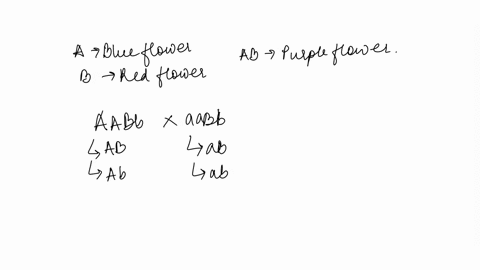 A → Blue flower
AB → Purple flower.
B → Red flower
AABb × aaBb
↳ AB ↳ ab
↳ Ab ↳ ab